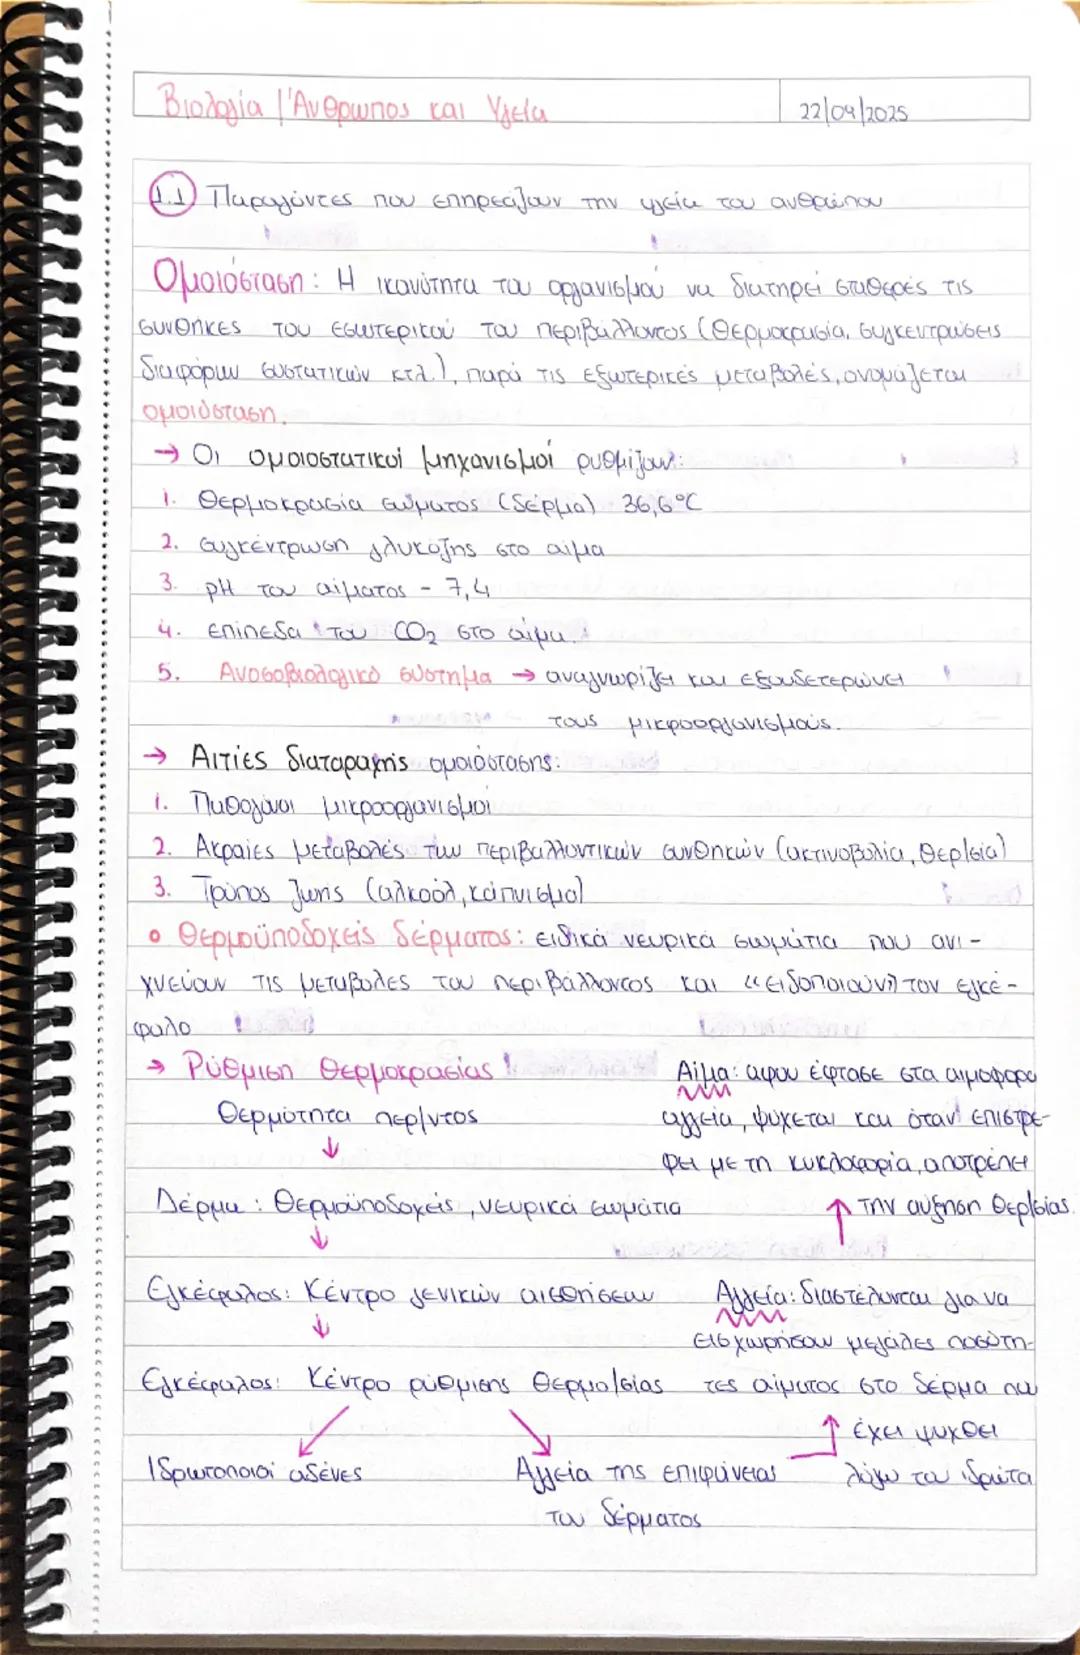 Βιολογία | Άνθρωπος και Υγεία
22/04/2025
1.1 Παράγοντες που επηρεάζουν την υγεία του ανθρώπου
Ομοιόσταση: Η ικανότητα του οργανισμού να διατηρεί σταθερές τις
συνθήκες του εσωτερικού του περιβάλλοντος (θερμοκρασία, συγκεντρώσεις
διαφόρων συστατικών κτλ.), παρά τις εξωτερικές μεταβολές, ονομάζεται
ομοιόσταση.
→ Οι ομοιοστατικοί μηχανισμοί ρυθμίζουν:
1. Θερμοκρασία σώματος (δέρμα) 36,6°C
2. συγκέντρωση γλυκόζης στο αίμα
3. pH του αίματος - 7,4
4. επίπεδα του CO₂ στο αίμα.
5. Ανοσοβιολογικό σύστημα → αναγνωρίζει και εξουδετερώνει
τους μικροοργανισμούς.
→ Αιτίες διαταραχής ομοιόστασης:
1. Παθογόνοι μικροοργανισμοί
2. Ακραίες μεταβολές των περιβαλλοντικών συνθηκών (ακτινοβολία, θερ/σία)
3. Τρόπος ζωής (αλκοόλ, κάπνισμα)
• Θερμοϋποδοχείς δέρματος: ειδικά νευρικά σωμάτια που ανι-
χνεύουν τις μεταβολές του περιβάλλοντος και «ειδοποιούν» τον εγκέ-
φαλο
→ Ρύθμιση Θερμοκρασίας!
Θερμότητα περ/ντος
↓
Δέρμα: Θερμοϋποδοχείς, νευρικά σωμάτια
↓
Εγκέφαλος: Κέντρο γενικών αισθήσεων
↓
Εγκέφαλος: Κέντρο ρύθμισης θερμο/σίας
Ιδρωτοποιοί αδένες
Αγγεία της επιφάνειας
του δέρματος
Αγγεία: διαστέλονται για να
εισχωρήσουν μεγάλες ποσότη-
τες αίματος στο δέρμα που
έχει ψυχθεί
λόγω του ιδρώτα
Αίμα: αφού έφτασε στα αιμοφόρα
αγγεία, ψύχεται και όταν επιστρέ-
φει με τη κυκλοφορία, αποτρέπει
την αύξηση θερ/σίας.